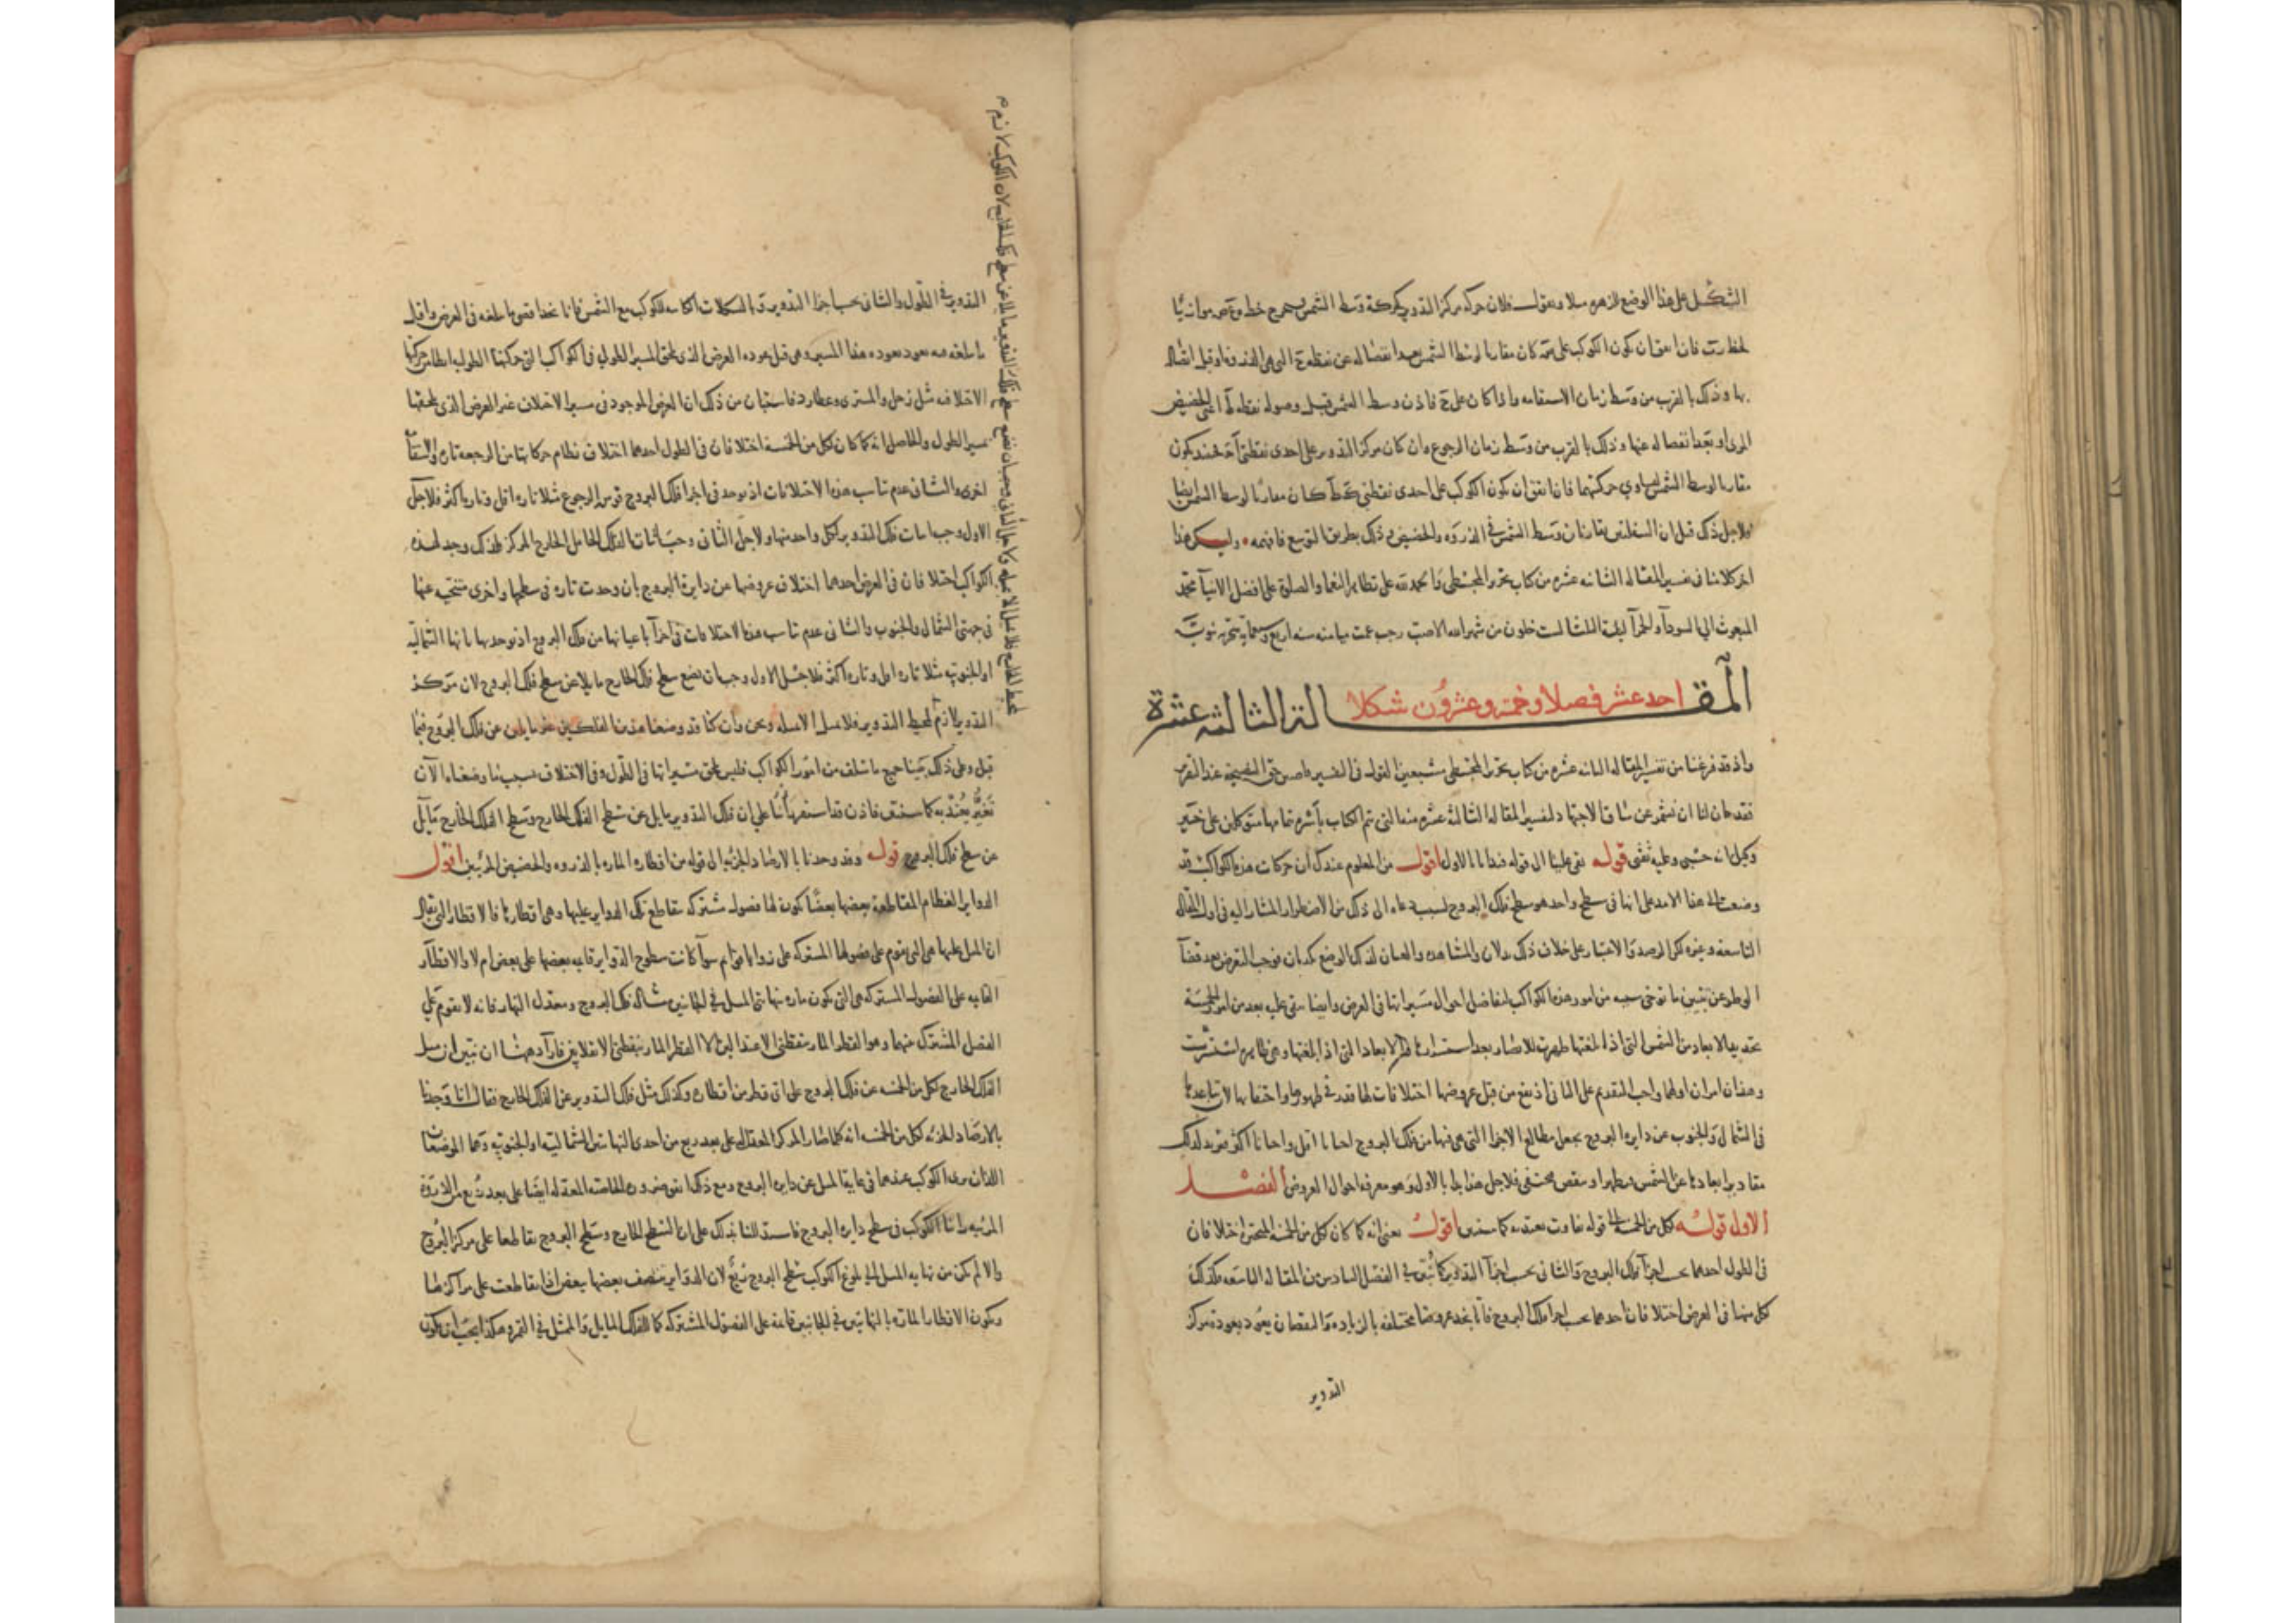 الشكل على هذا الوضع للزهره مثلا ونقول فلان حركة مركز التدوير كحركة وسط الشمس يخرج خط موازيا
لخط فان اتفق ان يكون الكوكب على كان مقارنا لوسط الشمس بعد انفصاله عن نقطة التي هي الذروة او قبل اتصاله
بها وذلك بالقرب من وسط زمان الاستقامه واذا كان على فاذن وسط الشمس قبل وصوله نقطة اعني الحضيض
المرى او بعد انفصاله عنها وذلك بالقرب من وسط زمان الرجوع وان كان مركز التدوير على احدى نقطتي يكون
مقارنا لوسط الشمس لتساوي حركتهما فان اتفق ان يكون الكوكب على احدى نقطتي كان مقارنا لوسط الشمس ايضا
ولاجل ذلك قيل ان السفليين يقارنان وسط الشمس في الذروه والحضيض وذلك بطريق التوسع فافهمه وليكن هذا
اخر كلامنا في تفسير المقاله الثانيه عشره من كتاب تحرير المجسطي والحمد لله على تظاهر النعما والصلوة على افضل الانبيا محمد
المبعوث الي السودآ والحمرآ ليلة الثلثا لست خلون من شهر الله الاصب رجب عمت ميامنه سنه اربع وسبعمايه
المقالة الثالثه عشرة
احد عشر فصلا وخمسه وعشرون شكلا
واذ قد فرغنا من تفسير المقاله الثانيه عشره من كتاب تحرير المجسطي مشبعين القول في التفسير
فقد حان لنا ان نشمر عن ساق الاجتهاد لتفسير المقاله الثالثه عشره منه التي تم الكتاب بأسره تمامها متوكلين على خير
وكيل انه حسبي وعليه ثقتي قوله بقى علينا الى قوله الاول اقول من المعلوم عندك ان حركات هذه الكواكب قد
وضعت الى هذا الامد على انها في سطح واحد هو سطح فلك البروج لسبب دعاه الى ذلك من الاضطرار المشار اليه في اول المقاله
التاسعه وغيره لكن الرصد والاعتبار على خلاف ذلك والمشاهده والعيان لذلك الوضع يكذبان فوجب التعرض بعد قضآ
الوطر عن تبيين ما توخى من امور هذه الكواكب لتفاضل احوال مسيراتها في العرض وايضا بقى عليه بعد من امور الخمسة
تحديد الابعاد من الشمس التي اذا بلغتها ظهرت للابصار بعد استتارها او الابعاد التي اذا بلغتها وهي ظاهره استترت
وهذان امران اولهما واجب التقديم على الثاني اذ يقع من قبل عروضها اختلافات لها قدر في ظهورها واختفايها لان تباعدها
في الشمال والجنوب عن دايره البروج يجعل مطالع الاجزا التي هي فيها من فلك البروج احيانا اقل واحيانا اكثر فيزيد لذلك
مقادير ابعادها عن الشمس فتظهر او ينقص فتختفي فلاجل هذا بدا بالاول وهو معرفه احوال العروض الفصل
الاول قوله لكل من الخمسه الى قوله تفاوت يعتد به كما سنبين اقول يعني انه كما كان لكل من الخمسه المتحيره اختلافان
في الطول احدهما بحسب اجزآ فلك البروج والثاني بحسب اجزآ التدوير كما سبق في الفصل السادس من المقاله التاسعه فكذلك
لكل منها في العرض اختلافان احدهما بحسب اجزا فلك البروج فانا نجد عروضها مختلفه بالزيادة والنقصان يعود بعودة مركز
التدوير
التدوير في الطول والثاني بحسب اجزا التدوير وبالتشكلات الكاينه للكوكب مع الشمس فانا نجد اقصى ما بلغه في العرض واقل
ما بلغه منه يعود بعوده هذا المسير وهى قبل عوده العرض الذى يلحق المسير الطولي في الكواكب التي حركتها الطوليه ابطأ من حركتها
الاختلافيه مثل زحل والمشترى وعطارد فاستبان من ذلك ان العرض الموجود في مسير الاختلاف غير العرض الذى يلحقها
بمسير الطول والحاصل انه كما كان لكل من الخمسة اختلافان في الطول احدهما اختلاف نظام حركاتها من الرجعه تارة والاستقامة
اخرى والثاني عدم تناسب هذه الاختلافات اذ توجد في اجزا فلك البروج قوس الرجوع مثلا تاره اقل وتارة اكثر فلاجل
الاول وجب اثبات فلك التدوير لكل واحد منها ولاجل الثاني وجب اثبات الفلك الحامل الخارج المركز فكذلك وجد لهذه
الكواكب اختلافان في العرض احدهما اختلاف عروضها عن دايرة البروج بان وجدت تاره في سطحها واخرى متنحيه عنها
في جهتي الشمال والجنوب والثاني عدم تناسب هذه الاختلافات في اجزآ باعيانها من فلك البروج اذ توجد نهاياتها الشمالية
او الجنوبيه مثلا تاره اقل وتاره اكثر فلاجل الاول وجب ان نضع سطح فلك الخارج مايلا عن سطح فلك البروج لان مركز
التدوير لازم لمحيط ونحن وان كنا قد وضعنا هذين الفلكين غير مايلين عن فلك البروج فيما
قبل وعلى ذلك بنينا جميع ما سلف من امور الكواكب فليس يلحق مسيراتها في الطول وفي الاختلاف بسبب ما وضعناه الآن
تغير يعتد به كما سنبين فاذن قد استقر رأينا على ان فلك التدوير مايل عن سطح الفلك الخارج وسطح الفلك الخارج مايل
عن سطح فلك البروج قوله وقد وجدنا بالارصاد الجزئيه الى قوله من اقطاره الماره بالذروه والحضيض المرئيين اقول
الدواير العظام المتقاطعة بعضها بعضا يكون لها فصول مشتركه يتقاطع تلك الدواير عليها وهى اقطارها فالاقطار التي يقال
ان الميل عليها هى التي يقوم على فصولها المشتركه على زوايا قوايم سوآ كانت سطوح الدواير قايمه بعضها على بعض ام لا والاقطار
القايمه على الفصول المشتركه هى التي يكون ماره بنهايتى الميل في الجانبين مثاله فلك البروج ومعدل النهار فانه لا يقوم على
الفصل المشترك بينهما وهو القطر المار بنقطتى الاعتدالين الا القطر المار بنقطتى الانقلابين فاراد هنا ان يبين ان ميل
الفلك الخارج لكل من الخمسه عن فلك البروج على اى قطر من اقطاره وكذلك ميل فلك التدوير عن الفلك الخارج فقال انا وجدنا
بالارصاد الجزئيه لكل من الخمسه انه كلما صار المركز المعدل له على بعد ربع من احدى النهايتين الشمالية او الجنوبيه وهما الموضعان
اللذان يرى الكوكب عندهما في غاية الميل عن دايره البروج ومع ذلك الخاصه المعدله ايضا على بعد ربع من الذروة
المرئيه راينا الكوكب في سطح دايره البروج فاستدللنا بذلك على ان السطح الخارج وسطح البروج يتقاطعا على مركز البروج
والا لم يكن من نهايه الميل الى بلوغ الكوكب سطح البروج ربع لان الدواير ينصف بعضها بعضا اذا تقاطعت على مراكزها
ويكون الاقطار الماره بالنهايتين في الجانبين قايمة على الفصول المشتركه كما للفلك المايل والممثل في القمر وهكذا يجب ان يكون